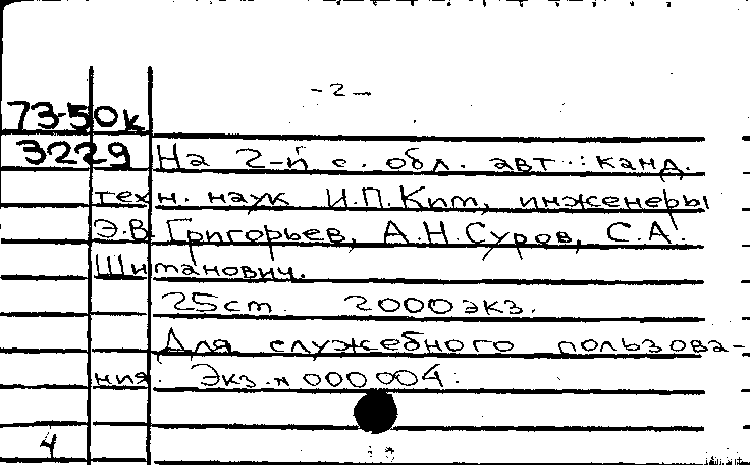 -2-
73-50к
3229 На 2-й с. обл. авт.: канд.
техн. наук И.П. Ким, инженеры
Э.В. Григорьев, А.Н. Суров, С.А.
Шитанович.
25 ст. 2000 экз.
Для служебного пользова-
ния. Экз. № 000004.
4